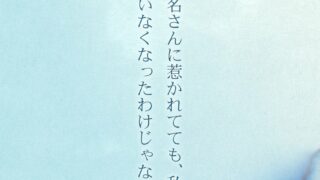 名さんに惹かれてても、私
いなくなったわけじゃな